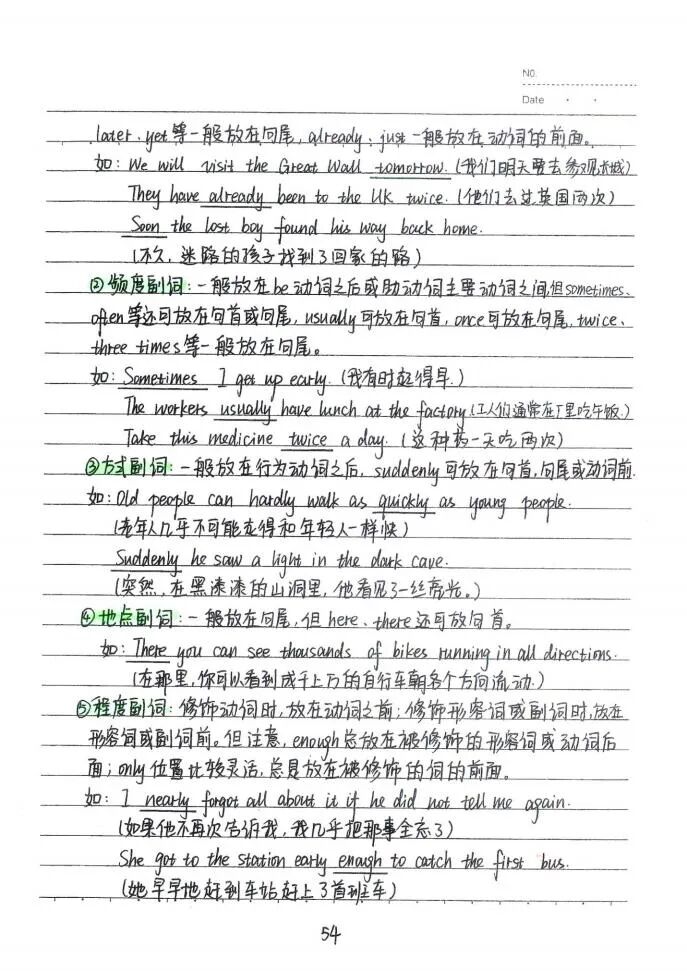 NO.
Date
later、yet等一般放在句尾,already、just一般放在动词的前面。
如: We will visit the Great Wall tomorrow. (我们明天要去参观长城)
They have already been to the UK twice. (他们去过英国两次)
Soon the lost boy found his way back home.
(不久,迷路的孩子找到了回家的路)
②频度副词:一般放在be动词之后或助动词主要动词之间,但sometimes、
often等还可放在句首或句尾,usually可放在句首,once可放在句尾,twice、
three times等一般放在句尾。
如: Sometimes I get up early. (我有时起得早.)
The workers usually have lunch at the factory.(工人们通常在厂里吃午饭.)
Take this medicine twice a day. (这种药一天吃两次)
③方式副词:一般放在行为动词之后, suddenly可放在句首,句尾或动词前.
如: Old people can hardly walk as quickly as young people.
(老年人几乎不可能走得和年轻人一样快)
Suddenly he saw a light in the dark cave.
(突然,在黑漆漆的山洞里,他看见了一丝亮光。)
④地点副词:一般放在句尾,但here、there还可放句首。
如: There you can see thousands of bikes running in all directions.
(在那里,你可以看到成千上万的自行车朝各个方向流动.)
⑤程度副词:修饰动词时,放在动词之前;修饰形容词或副词时,放在
形容词或副词前。但注意,enough总放在被修饰的形容词或动词后
面;only位置比较灵活,总是放在被修饰的词的前面。
如: I nearly forgot all about it if he did not tell me again.
(如果他不再次告诉我,我几乎把那事全忘了)
She got to the station early enough to catch the first bus.
(她早早地赶到车站赶上了首班车)
54